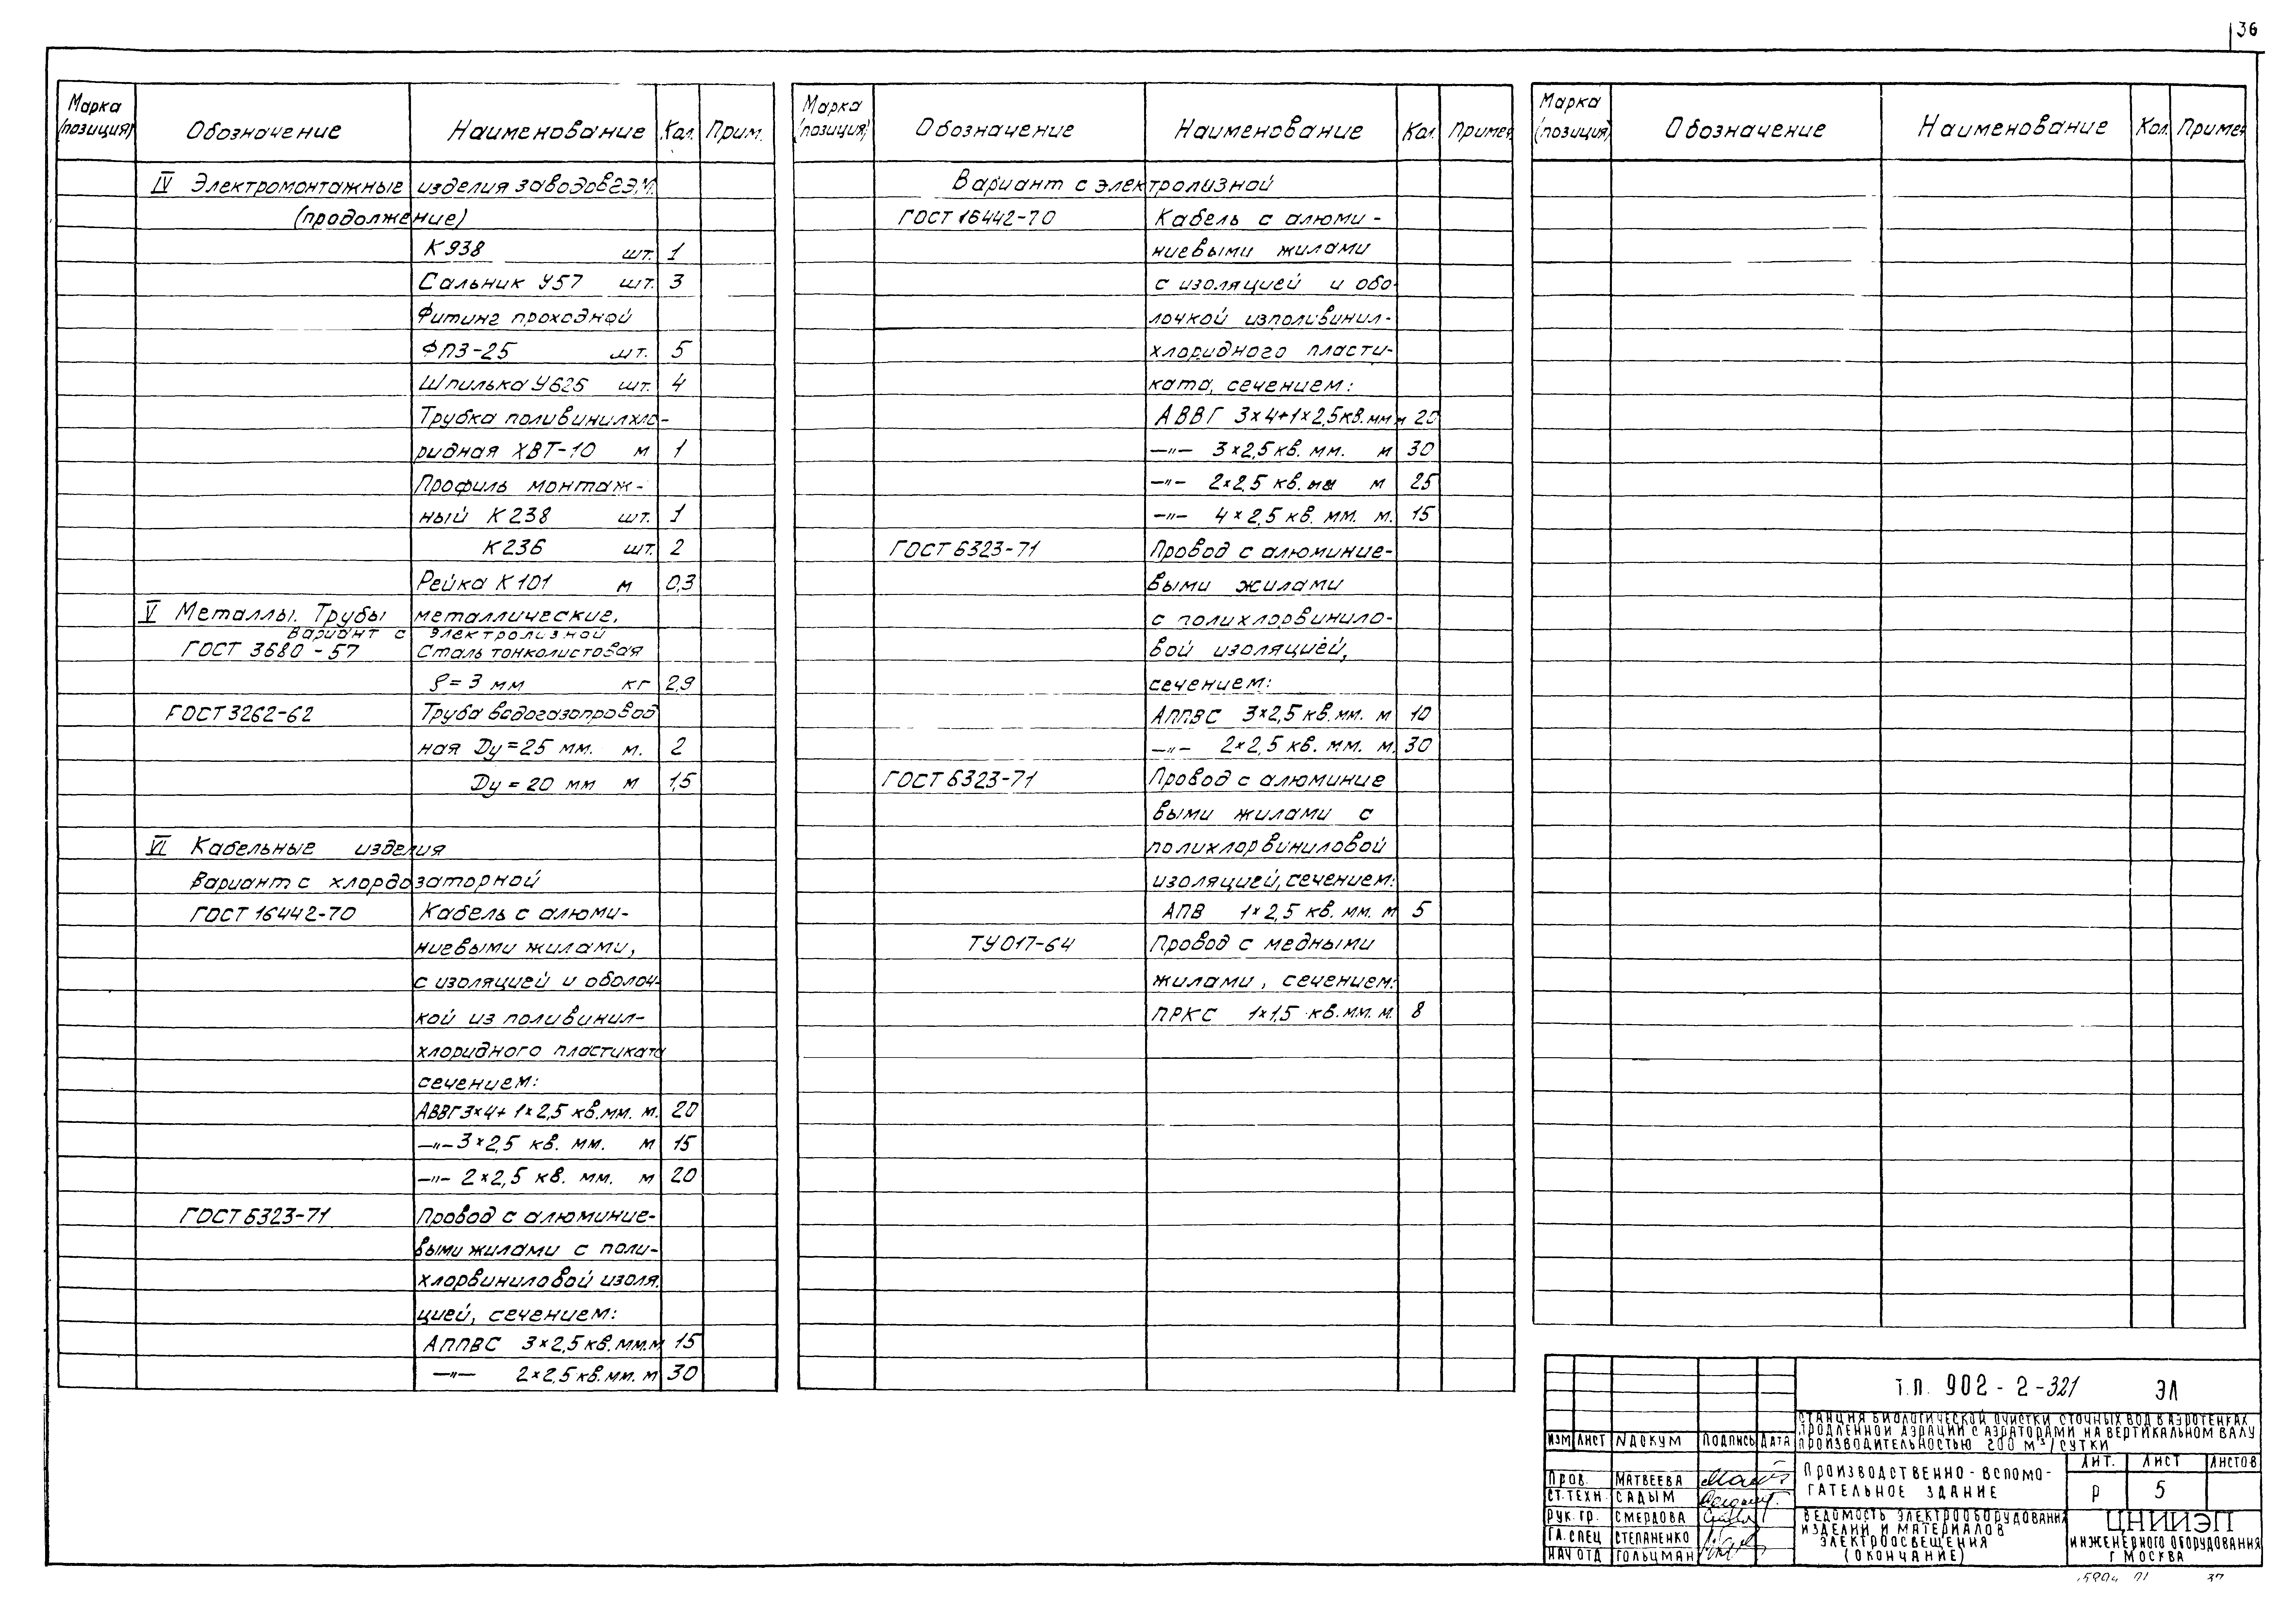 36
Марка (позиция) Обозначение Наименование Кол. Прим.
IV Электромонтажные изделия заводов ГЭМ.
(продолжение)
К938 шт. 1
Сальник У57 шт. 3
Фитинг проходной
ФПЗ-25 шт. 5
Шпилька У625 шт. 4
Трубка поливинилхло-
ридная ХВТ-10 м 1
Профиль монтаж-
ный К238 шт. 1
К236 шт. 2
Рейка К101 м 0,3
V Металлы. Трубы металлические.
Вариант с электролизной
ГОСТ 3680-57 Сталь тонколистовая
δ=3 мм кг 2,9
ГОСТ 3262-62 Труба водогазопровод
ная Dу=25 мм. м. 2
Dу=20 мм м 1,5
VI Кабельные изделия
Вариант с хлордозаторной
ГОСТ 16442-70 Кабель с алюми-
ниевыми жилами,
с изоляцией и оболоч-
кой из поливинил-
хлоридного пластиката
сечением:
АВВГ 3×4+1×2,5 кв.мм. м. 20
—"— 3×2,5 кв. мм. м 15
—"— 2×2,5 кв. мм. м 20
ГОСТ 6323-71 Провод с алюминие-
выми жилами с поли-
хлорвиниловой изоля.
цией, сечением:
АППВС 3×2,5 кв.мм.м 15
—"— 2×2,5 кв.мм. м 30
Марка (позиция) Обозначение Наименование Кол. Примеч
Вариант с электролизной
ГОСТ 16442-70 Кабель с алюми-
ниевыми жилами
с изоляцией и обо-
лочкой из поливинил-
хлоридного пласти-
ката, сечением:
АВВГ 3×4+1×2,5кв.мм м 20
—"— 3×2,5 кв. мм. м 30
—"— 2×2,5 кв. мм м 25
—"— 4×2,5 кв. мм. м. 15
ГОСТ 6323-71 Провод с алюминие-
выми жилами
с полихлорвинило-
вой изоляцией,
сечением:
АППВС 3×2,5 кв.мм. м 10
—"— 2×2,5 кв. мм. м. 30
ГОСТ 6323-71 Провод с алюминие
выми жилами с
полихлорвиниловой
изоляцией, сечением:
АПВ 1×2,5 кв. мм. м 5
ТУ 017-64 Провод с медными
жилами, сечением:
ПРКС 1×1,5 кв.мм. м. 8
Марка (позиция) Обозначение Наименование Кол. Примеч
Т.П. 902-2-321 ЭЛ
СТАНЦИЯ БИОЛОГИЧЕСКОЙ ОЧИСТКИ СТОЧНЫХ ВОД В АЭРОТЕНКАХ
ПРОДЛЕННОЙ АЭРАЦИИ С АЭРАТОРАМИ НА ВЕРТИКАЛЬНОМ ВАЛУ
ПРОИЗВОДИТЕЛЬНОСТЬЮ 200 М³/СУТКИ
ИЗМ ЛИСТ №ДОКУМ ПОДПИСЬ ДАТА
ПРОВ. МАТВЕЕВА
СТ.ТЕХН. САДЫМ
РУК. ГР. СМЕРДОВА
ГЛ.СПЕЦ СТЕПАНЕНКО
НАЧ ОТД ГОЛЬЦМАН
ПРОИЗВОДСТВЕННО-ВСПОМО-
ГАТЕЛЬНОЕ ЗДАНИЕ
ЛИТ. ЛИСТ ЛИСТОВ
Р 5
ВЕДОМОСТЬ ЭЛЕКТРООБОРУДОВАНИЯ
ИЗДЕЛИЙ И МАТЕРИАЛОВ
ЭЛЕКТРООСВЕЩЕНИЯ
(ОКОНЧАНИЕ)
ЦНИИЭП
ИНЖЕНЕРНОГО ОБОРУДОВАНИЯ
Г МОСКВА
37